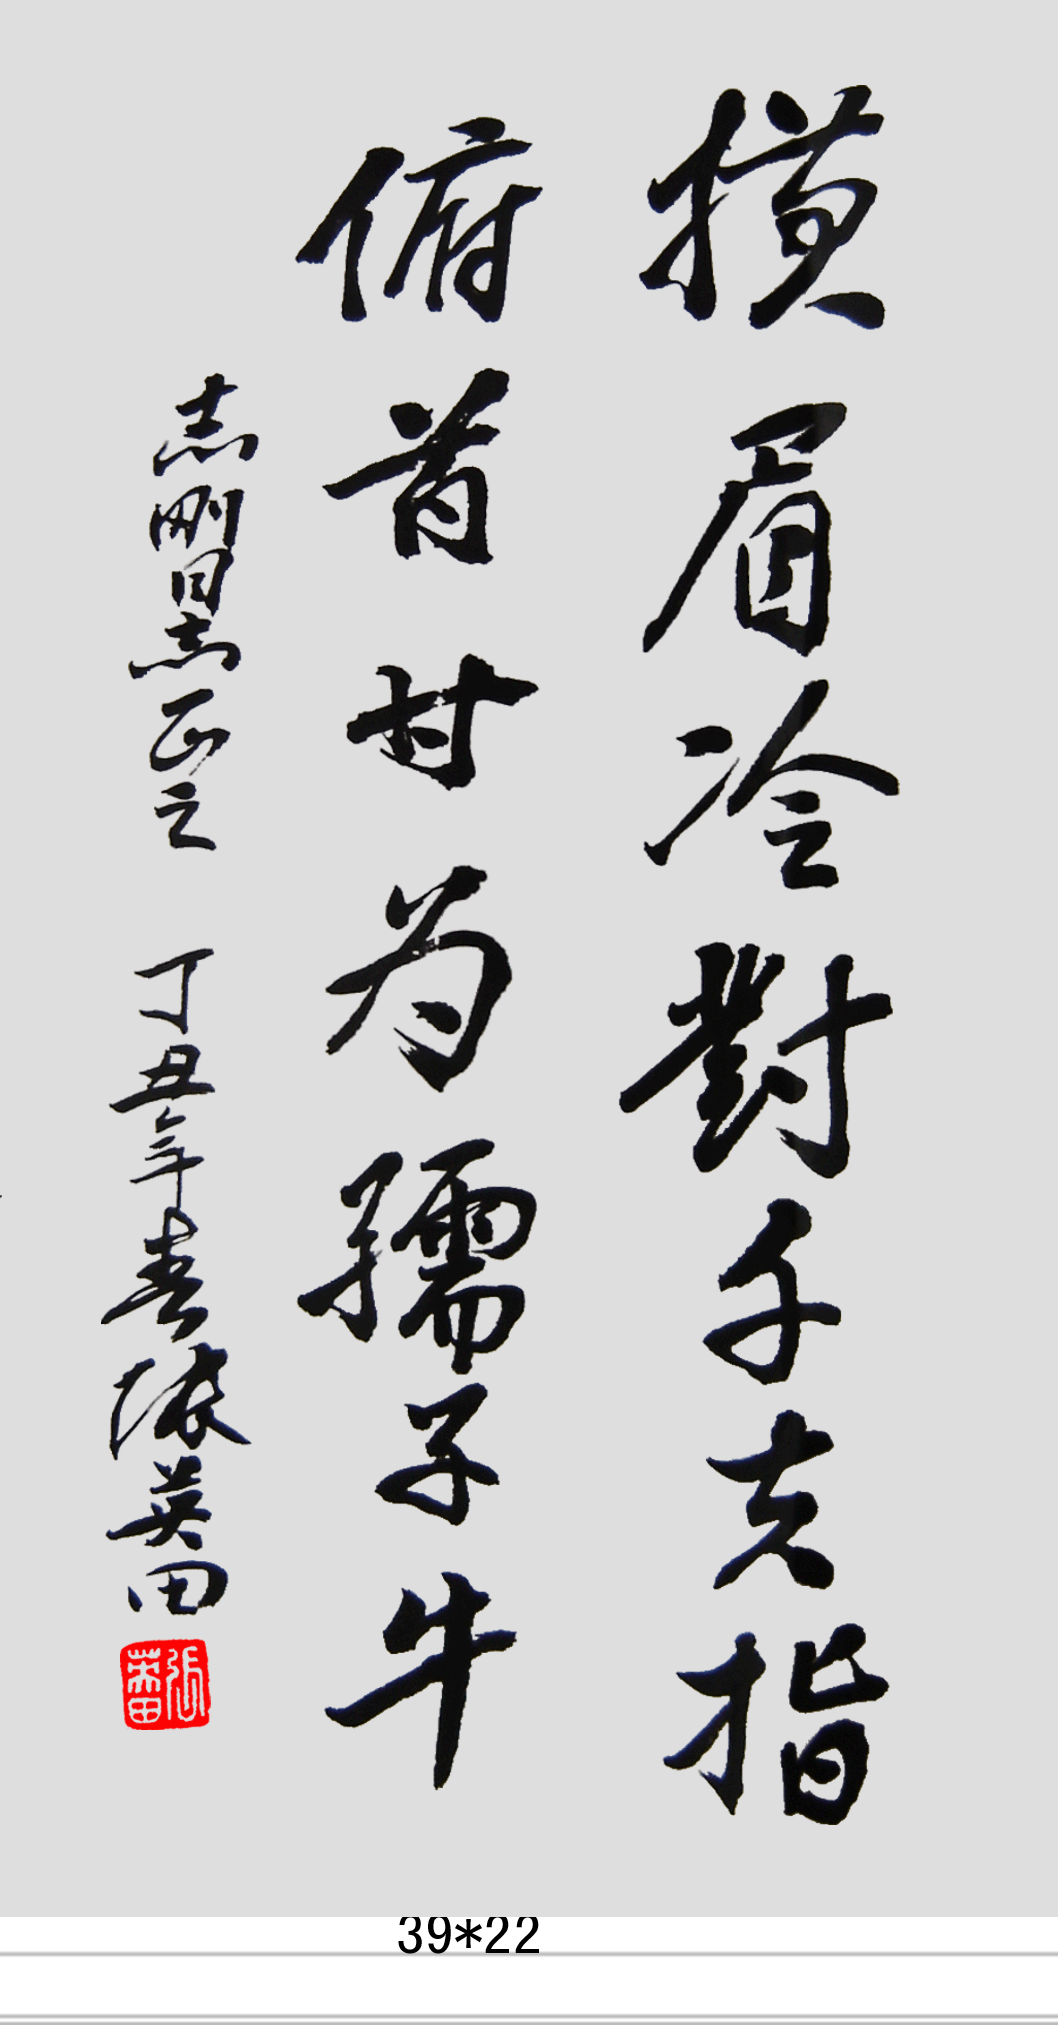 横眉冷對千夫指
俯首甘为孺子牛
志刚同志正之 丁丑年春张英田
張英田
39*22